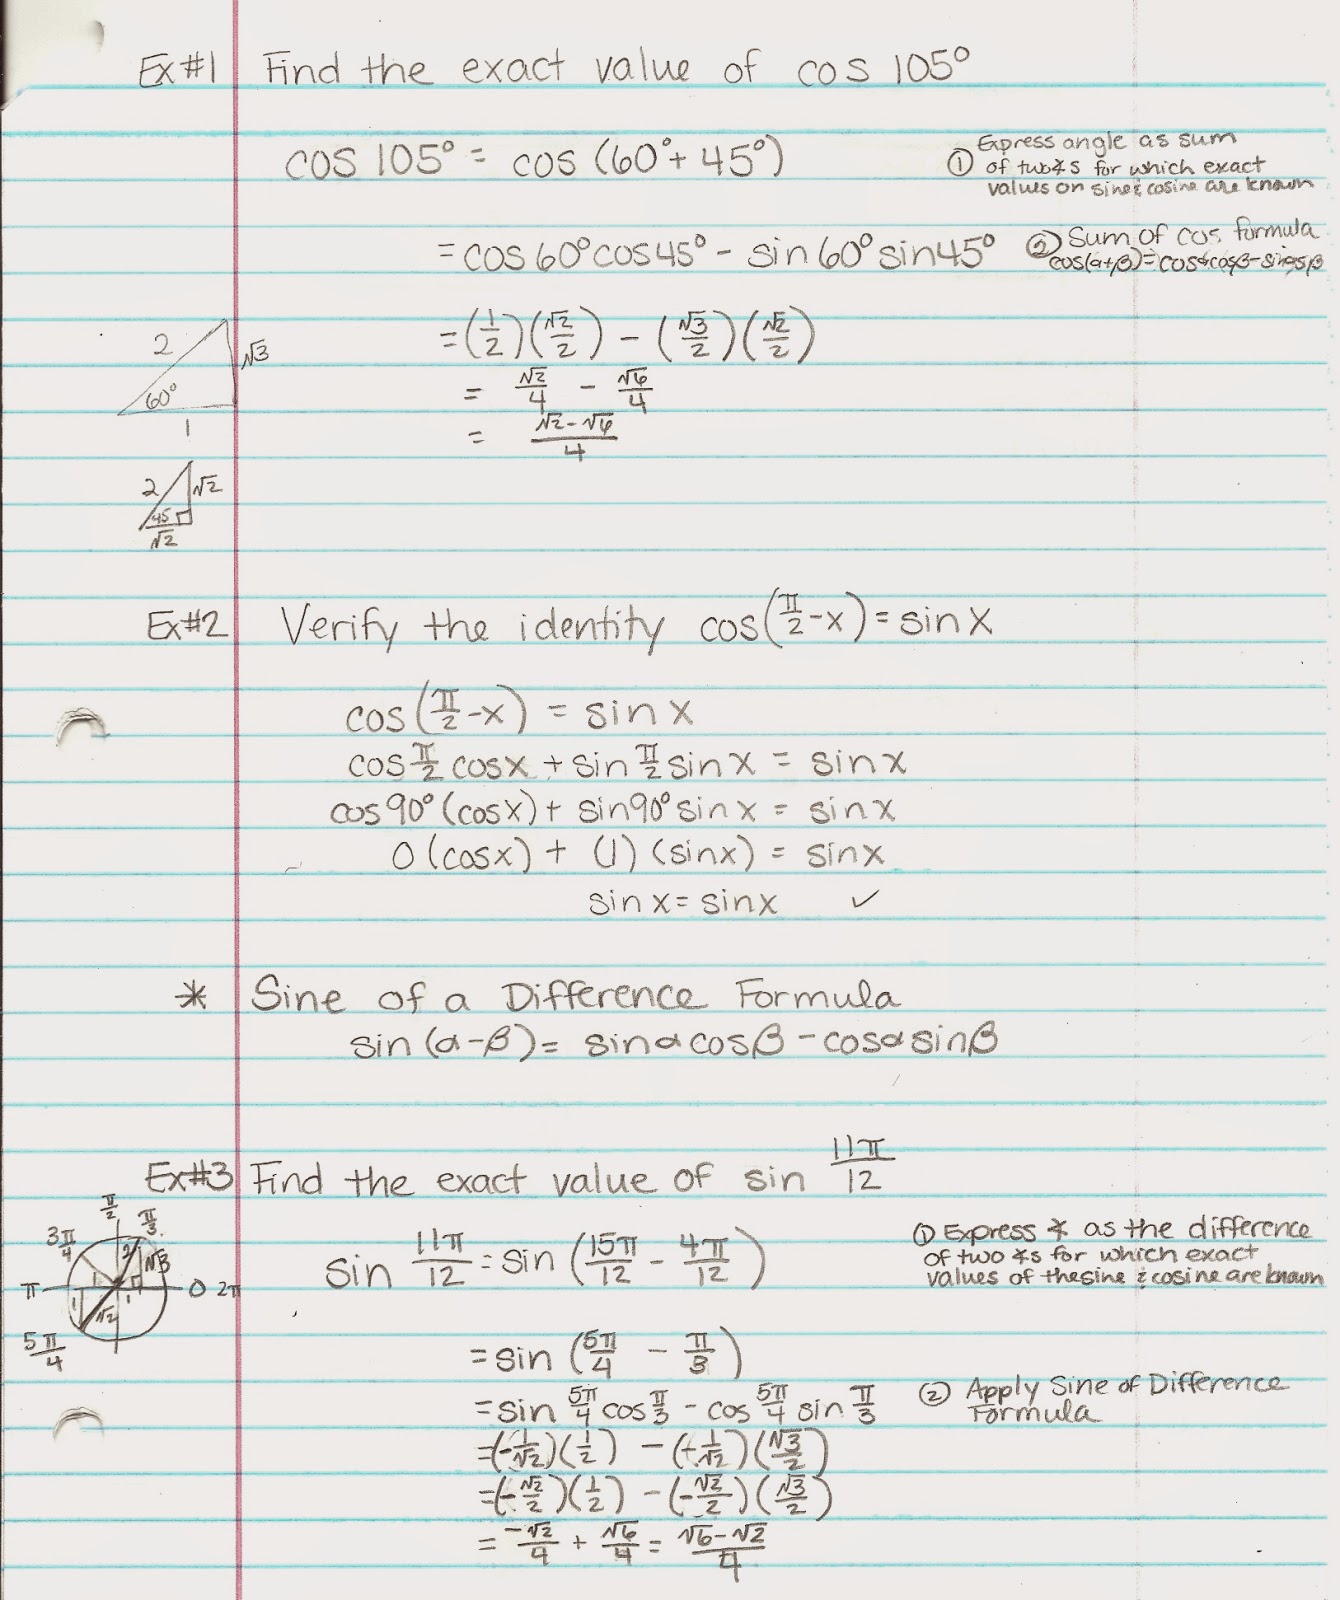 Ex#1 Find the exact value of cos 105°
cos 105° = cos (60° + 45°)
① Express angle as sum
of two ∡s for which exact
values on sine & cosine are known
= cos 60° cos 45° - sin 60° sin 45°
② Sum of cos formula
cos(α+β) = cosαcosβ - sinαsinβ
2 √3
60°
1
= (1/2)(√2/2) - (√3/2)(√2/2)
= √2/4 - √6/4
= (√2-√6)/4
2 √2
45
√2
Ex#2 Verify the identity cos(π/2 - x) = sin x
cos(π/2 - x) = sin x
cos π/2 cos x + sin π/2 sin x = sin x
cos 90° (cos x) + sin 90° sin x = sin x
0 (cos x) + (1) (sin x) = sin x
sin x = sin x ✓
* Sine of a Difference Formula
sin (α-β) = sin α cos β - cos α sin β
Ex#3 Find the exact value of sin 11π/12
π/2 π/3
3π/4 2 √3
π 1 1 0 2π
1 √2
5π/4
sin 11π/12 = sin (15π/12 - 4π/12)
① Express ∡ as the difference
of two ∡s for which exact
values of the sine & cosine are known
= sin (5π/4 - π/3)
= sin 5π/4 cos π/3 - cos 5π/4 sin π/3
② Apply Sine of Difference
Formula
= (-1/√2)(1/2) - (-1/√2)(√3/2)
= (-√2/2)(1/2) - (-√2/2)(√3/2)
= -√2/4 + √6/4 = (√6-√2)/4